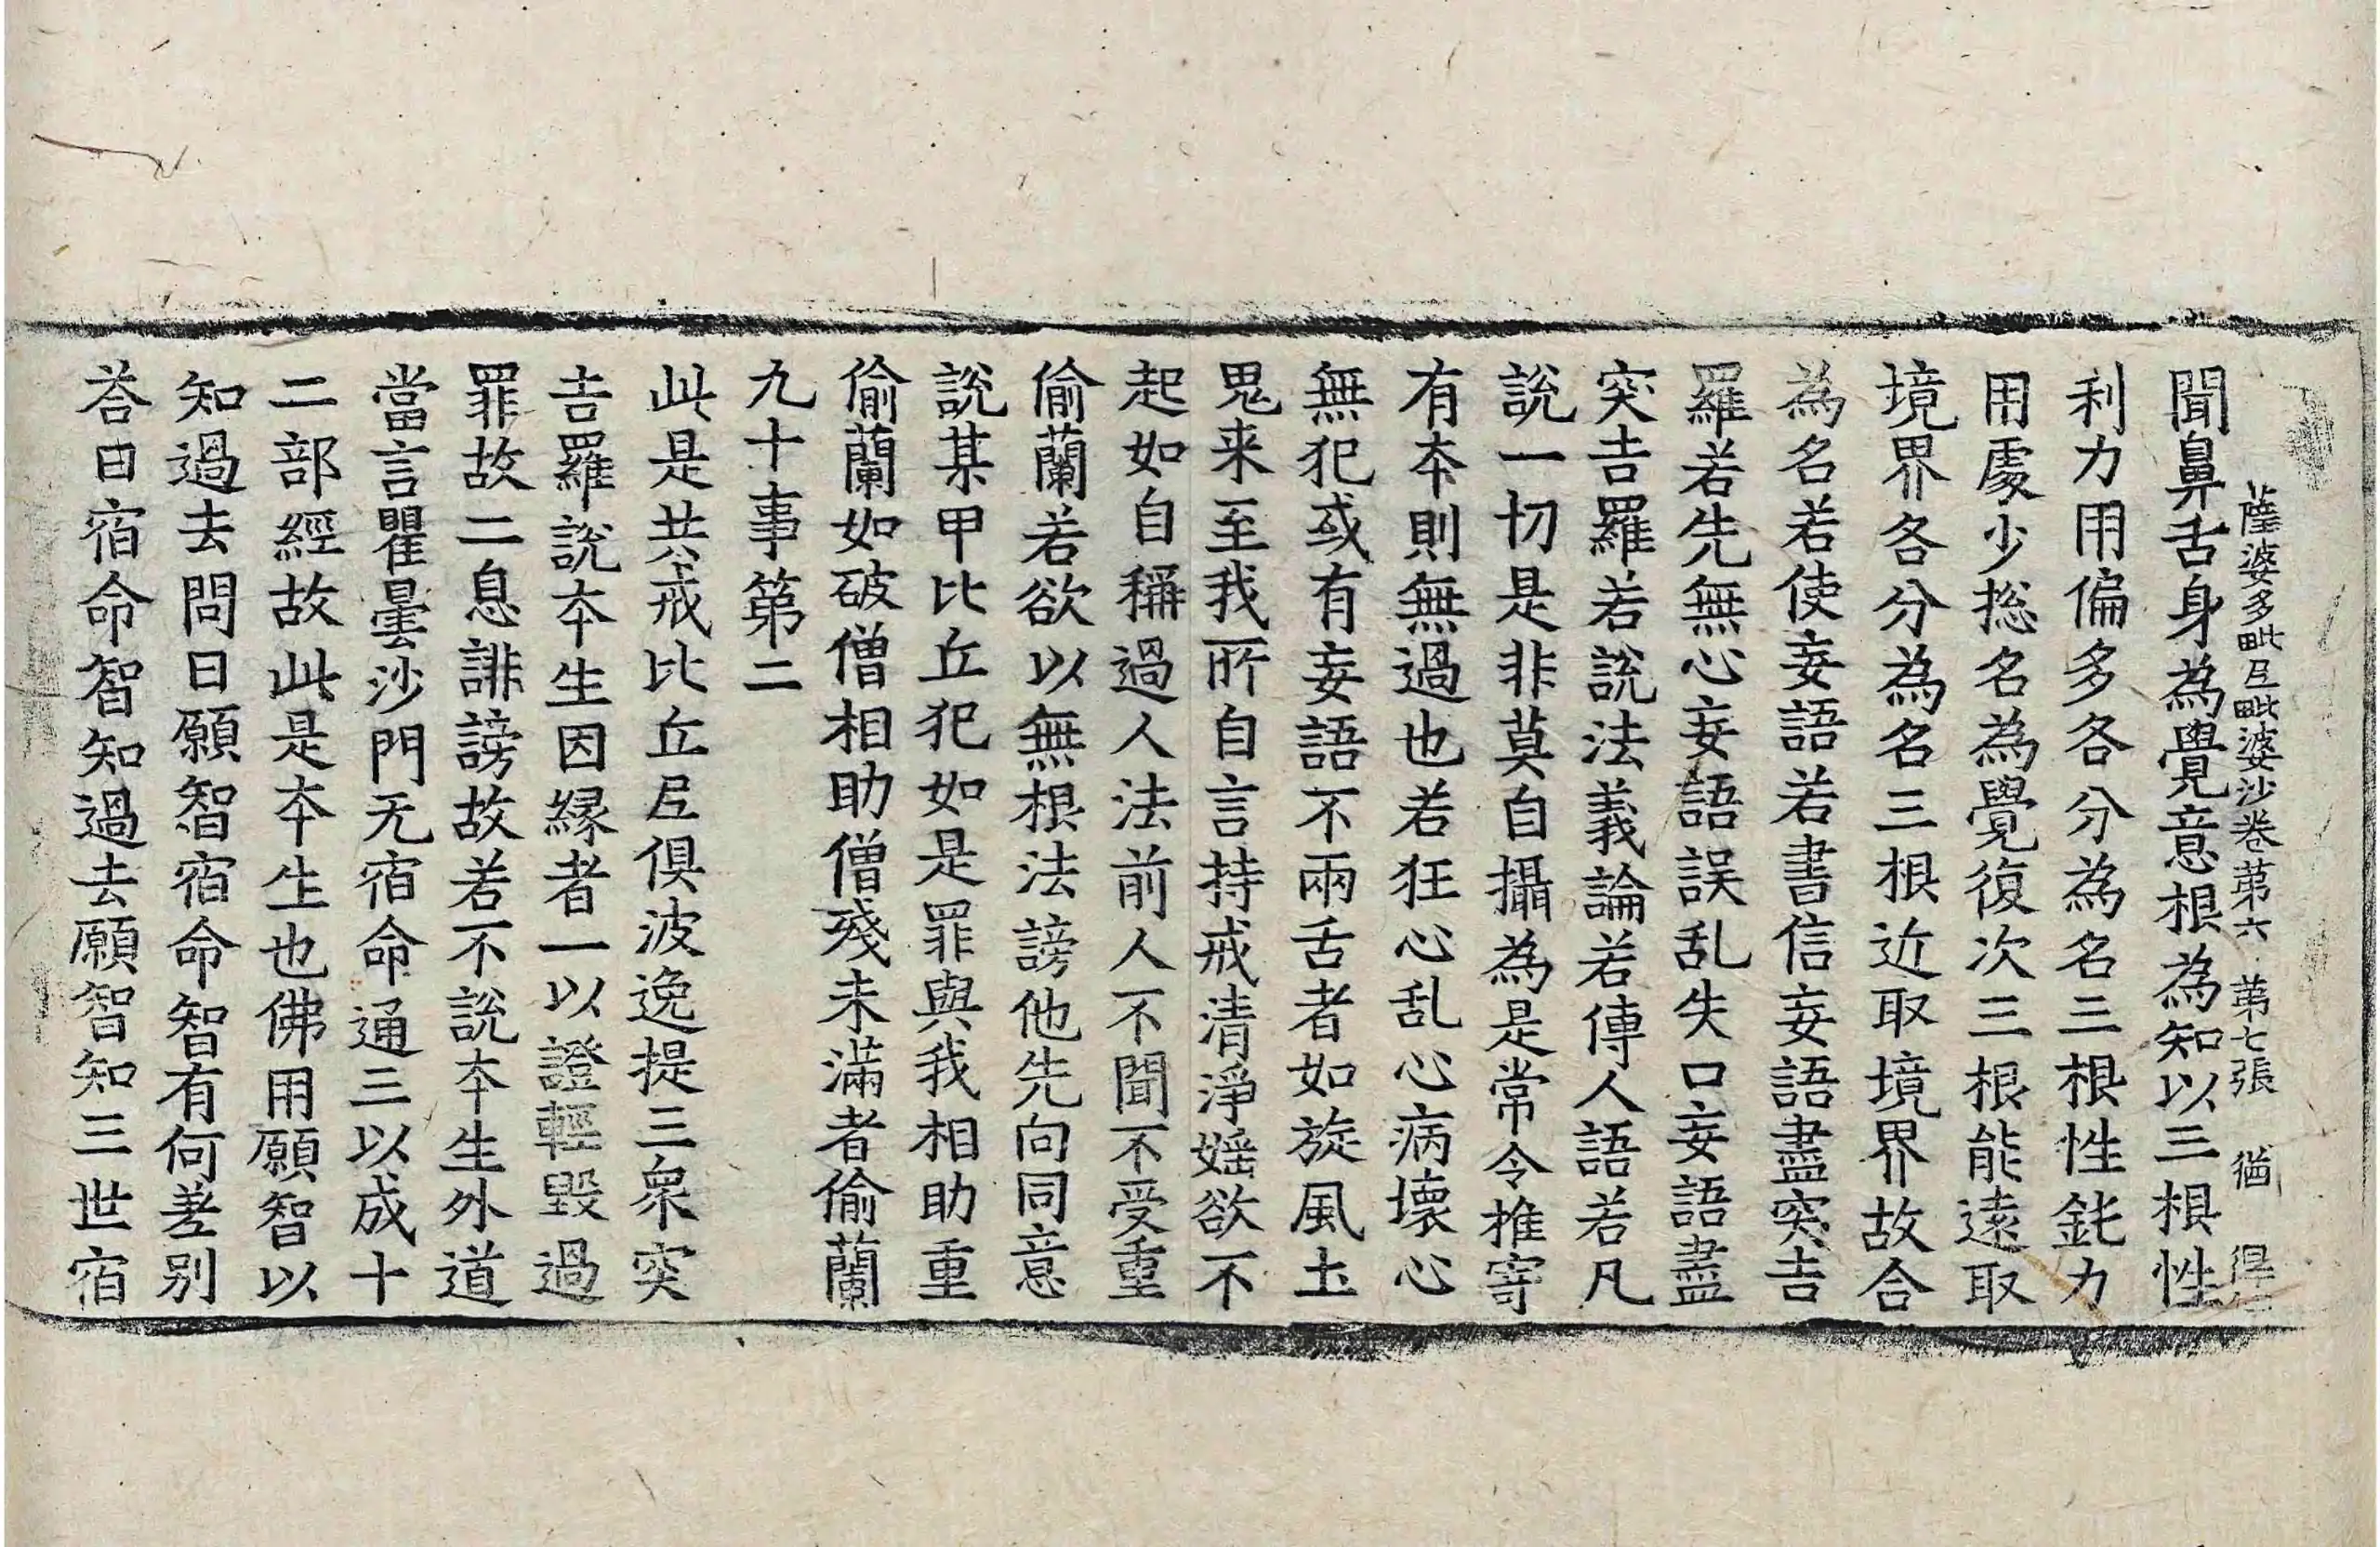 薩婆多毗尼毗婆沙卷第六 第七張 猶 得
聞鼻舌身為覺意根為知以三根性
利力用偏多各分為名三根性鈍力
用處少捴名為覺復次三根能遠取
境界各分為名三根近取境界故合
為名若使妄語若書信妄語盡突吉
羅若先無心妄語誤乱失口妄語盡
突吉羅若說法義論若傳人語若凡
說一切是非莫自攝為是常令推寄
有本則無過也若狂心乱心病壞心
無犯或有妄語不兩舌者如旋風土
鬼来至我所自言持戒清淨婬欲不
起如自稱過人法前人不聞不受重
偷蘭若欲以無根法謗他先向同意
說某甲比丘犯如是罪與我相助重
偷蘭如破僧相助僧殘未滿者偷蘭
九十事第二
此是共戒比丘尼俱波逸提三衆突
吉羅說本生因緣者一以證輕毀過
罪故二息誹謗故若不說本生外道
當言瞿曇沙門无宿命通三以成十
二部經故此是本生也佛用願智以
知過去問曰願智宿命智有何差別
荅曰宿命智知過去願智知三世宿